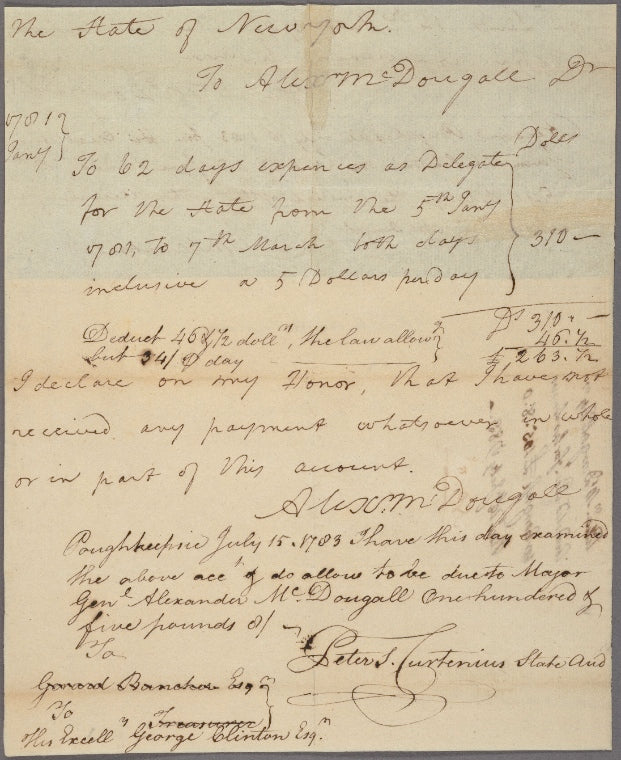 The State of New york.
To Alexr McDougall Dr
1781
Jany
Dolls
To 62 days expences as Delegate
for the State from the 5th Jany
1781, to 7th March both days
inclusive a 5 Dollars per day
310 —
Ds 310 " —
Deduct 46 1/2 dollrs, the law allowg
46. 1/2
but 34/ day
263. 1/2
I declare on my Honor, that I have not
received any payment whatsoever in whole
or in part of this account.
Alexr McDougall
Poughkeepsie July 15. 1783 I have this day examined
the above acct & do allow to be due to Major
Genl Alexander McDougall One hundred &
five pounds 8/ —
To
Peter S. Curtenius State Aud
Gerard Bancker Esqr
To
Treasurer
His Excelly George Clinton Esqr